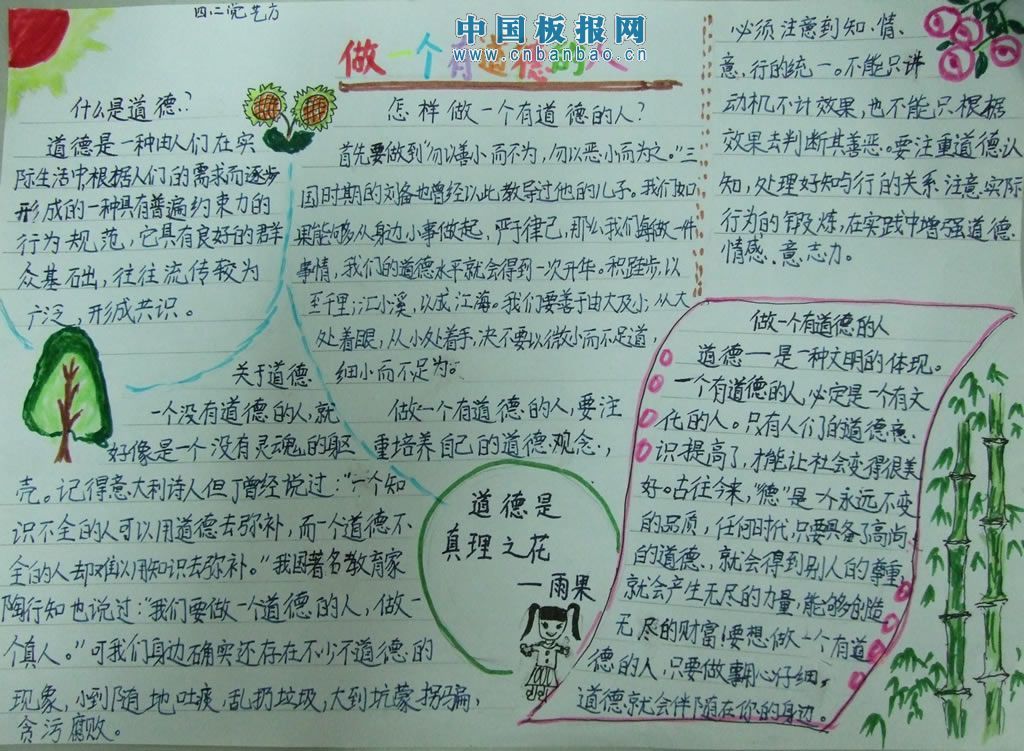 四二
艺方
中国板报网
www.cnbanbao.cn
做一个有道德的人
什么是道德？
道德是一种由人们在实
际生活中根据人们的需求而逐步
形成的一种具有普遍约束力的
行为规范，它具有良好的群
众基础，往往流传较为
广泛，形成共识。
怎样做一个有道德的人？
首先要做到“勿以善小而不为，勿以恶小而为之。”三
国时期的刘备也曾经以此教导过他的儿子。我们如
果能够从身边小事做起，严于律己，那么我们每做一件
事情，我们的道德水平就会得到一次升华。积跬步，以
至千里；汇小溪，以成江海。我们要善于由大及小，从大
处着眼，从小处着手，决不要以微小而不足道，
细小而不足为。
做一个有道德的人，要注
重培养自己的道德观念，
必须注意到知、情、
意、行的统一。不能只讲
动机不计效果，也不能只根据
效果去判断其善恶。要注重道德认
知，处理好知与行的关系，注意实际
行为的锻炼，在实践中增强道德
情感、意志力。
关于道德
一个没有道德的人，就
好像是一个没有灵魂的躯
壳。记得意大利诗人但丁曾经说过：“一个知
识不全的人可以用道德去弥补，而一个道德不
全的人却难以用知识去弥补。”我国著名教育家
陶行知也说过：“我们要做一个道德的人，做一
个真人。”可我们身边确实还存在不少不道德的
现象，小到随地吐痰，乱扔垃圾，大到坑蒙拐骗，
贪污腐败。
道德是
真理之花
—雨果
做一个有道德的人
道德一一是一种文明的体现。
一个有道德的人，必定是一个有文
化的人。只有人们的道德意
识提高了，才能让社会变得很美
好。古往今来，“德”是一个永远不变
的品质，任何时代，只要具备了高尚
的道德，就会得到别人的尊重，
就会产生无尽的力量，能够创造
无尽的财富！要想做一个有道
德的人，只要做事用心仔细，
道德就会伴随在你的身边。